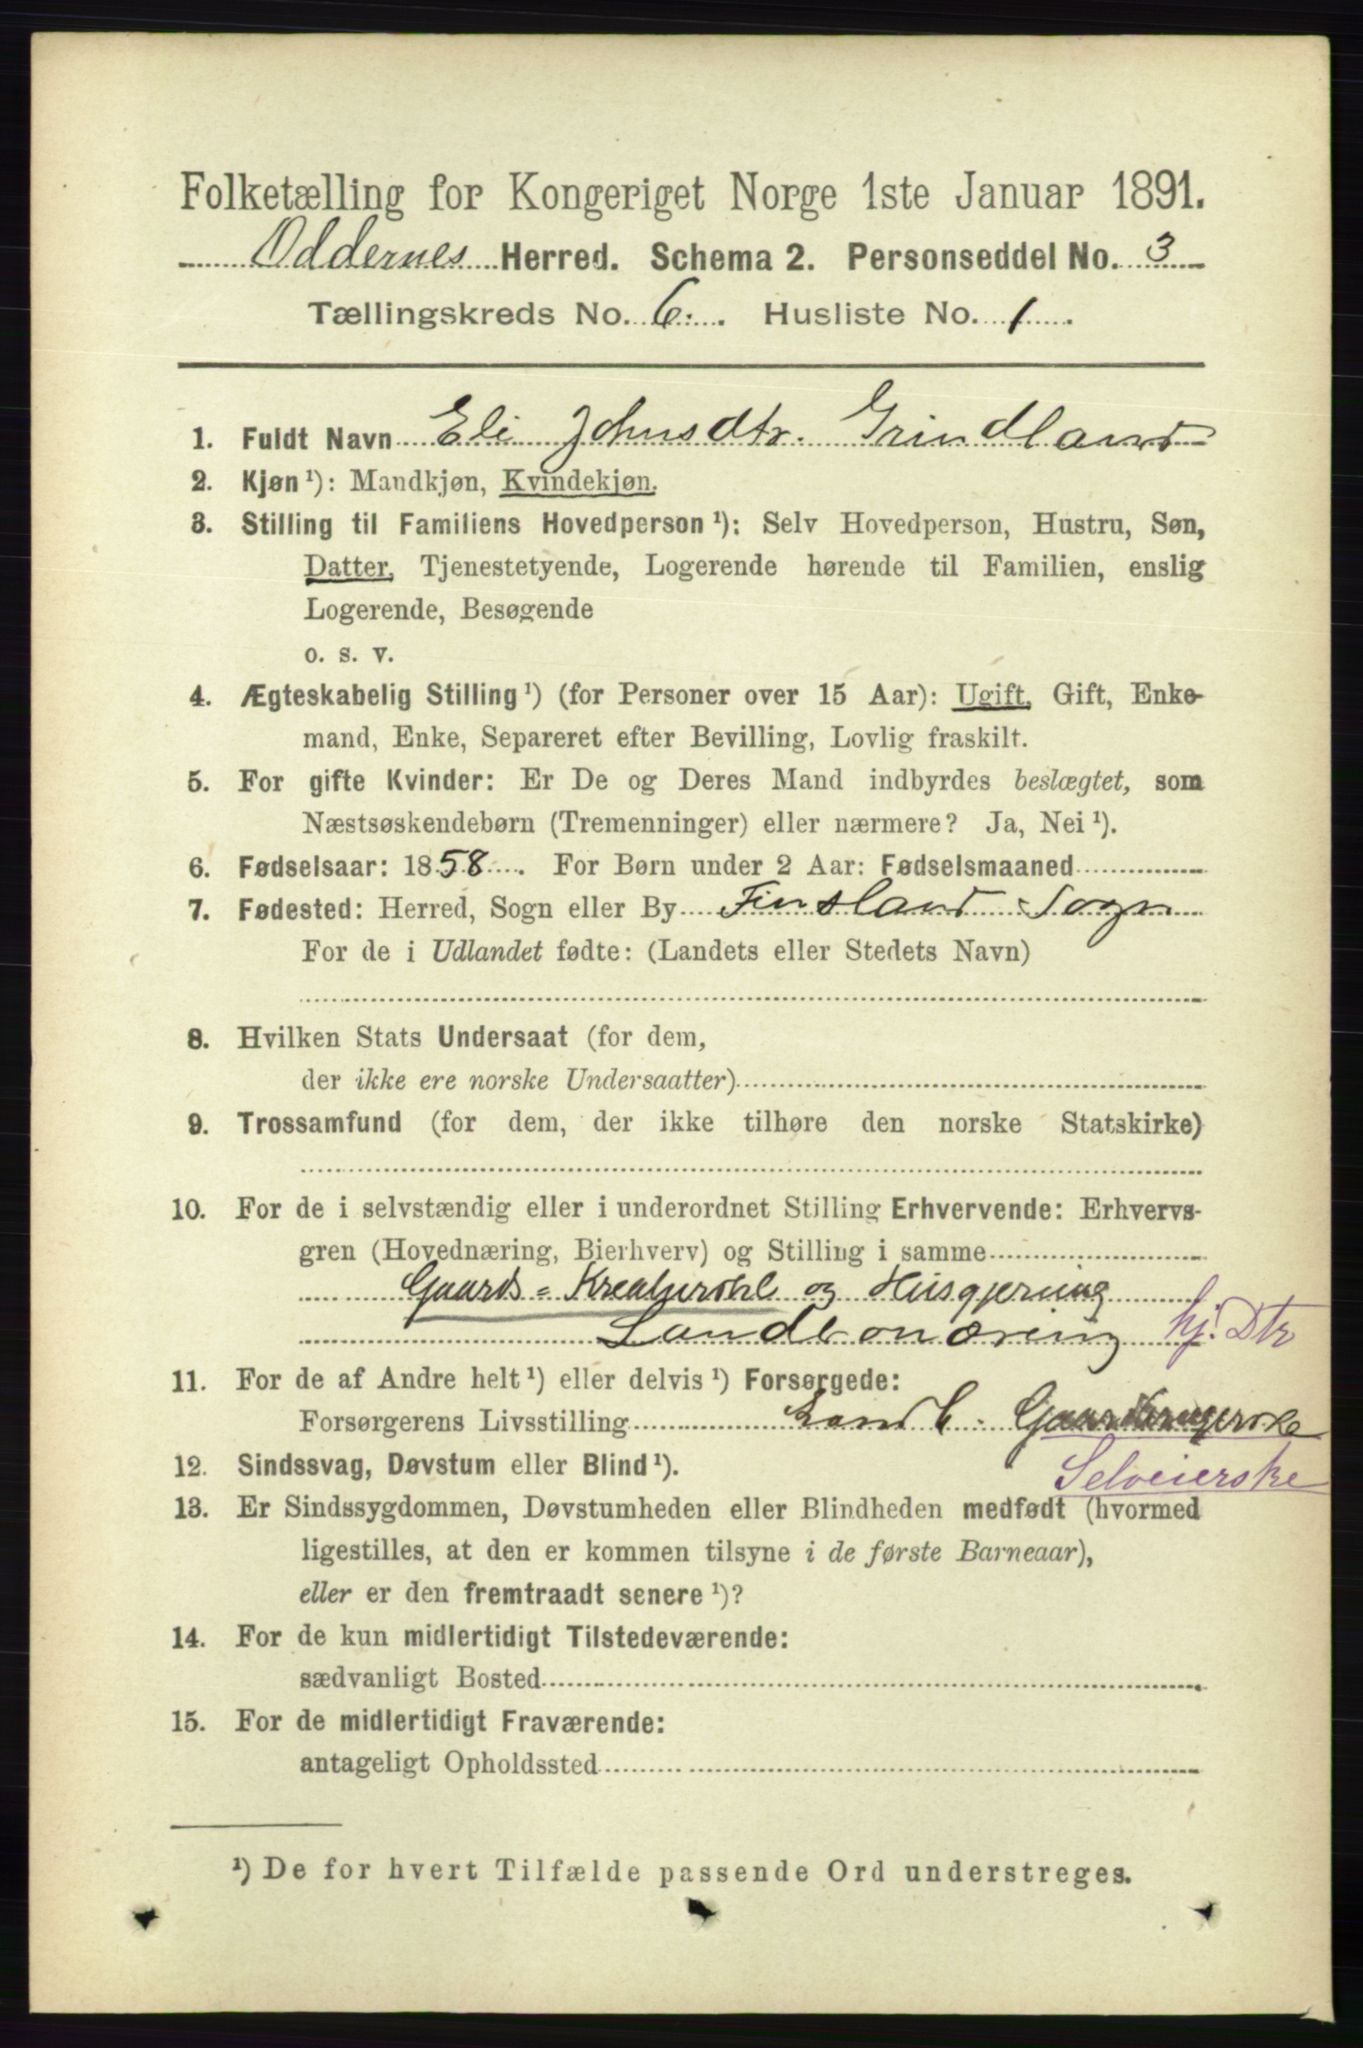 Folketælling for Kongeriget Norge 1ste Januar 1891.
Oddernes Herred. Schema 2. Personseddel No. 3
Tællingskreds No. 6. Husliste No. 1
1. Fuldt Navn Eli Johnsdtr. Grindland
2. Kjøn ¹): Mandkjøn, Kvindekjøn.
3. Stilling til Familiens Hovedperson ¹): Selv Hovedperson, Hustru, Søn,
Datter, Tjenestetyende, Logerende hørende til Familien, enslig
Logerende, Besøgende
o. s. v.
4. Ægteskabelig Stilling ¹) (for Personer over 15 Aar): Ugift, Gift, Enke-
mand, Enke, Separeret efter Bevilling, Lovlig fraskilt.
5. For gifte Kvinder: Er De og Deres Mand indbyrdes beslægtet, som
Næstsøskendebørn (Tremenninger) eller nærmere? Ja, Nei ¹).
6. Fødselsaar: 1858. For Børn under 2 Aar: Fødselsmaaned
7. Fødested: Herred, Sogn eller By Finsland Sogn
For de i Udlandet fødte: (Landets eller Stedets Navn)
8. Hvilken Stats Undersaat (for dem,
der ikke ere norske Undersaatter)
9. Trossamfund (for dem, der ikke tilhøre den norske Statskirke)
10. For de i selvstændig eller i underordnet Stilling Erhvervende: Erhvervs-
gren (Hovednæring, Bierhverv) og Stilling i samme
Gaards= Kreaturstel og Husgjerning
Landbonæring hj. Dtr
11. For de af Andre helt ¹) eller delvis ¹) Forsørgede:
Forsørgerens Livsstilling Landb.
12. Sindssvag, Døvstum eller Blind ¹). Selveierske
13. Er Sindssygdommen, Døvstumheden eller Blindheden medfødt (hvormed
ligestilles, at den er kommen tilsyne i de første Barneaar),
eller er den fremtraadt senere ¹)?
14. For de kun midlertidigt Tilstedeværende:
sædvanligt Bosted
15. For de midlertidigt Fraværende:
antageligt Opholdssted
¹) De for hvert Tilfælde passende Ord understreges.